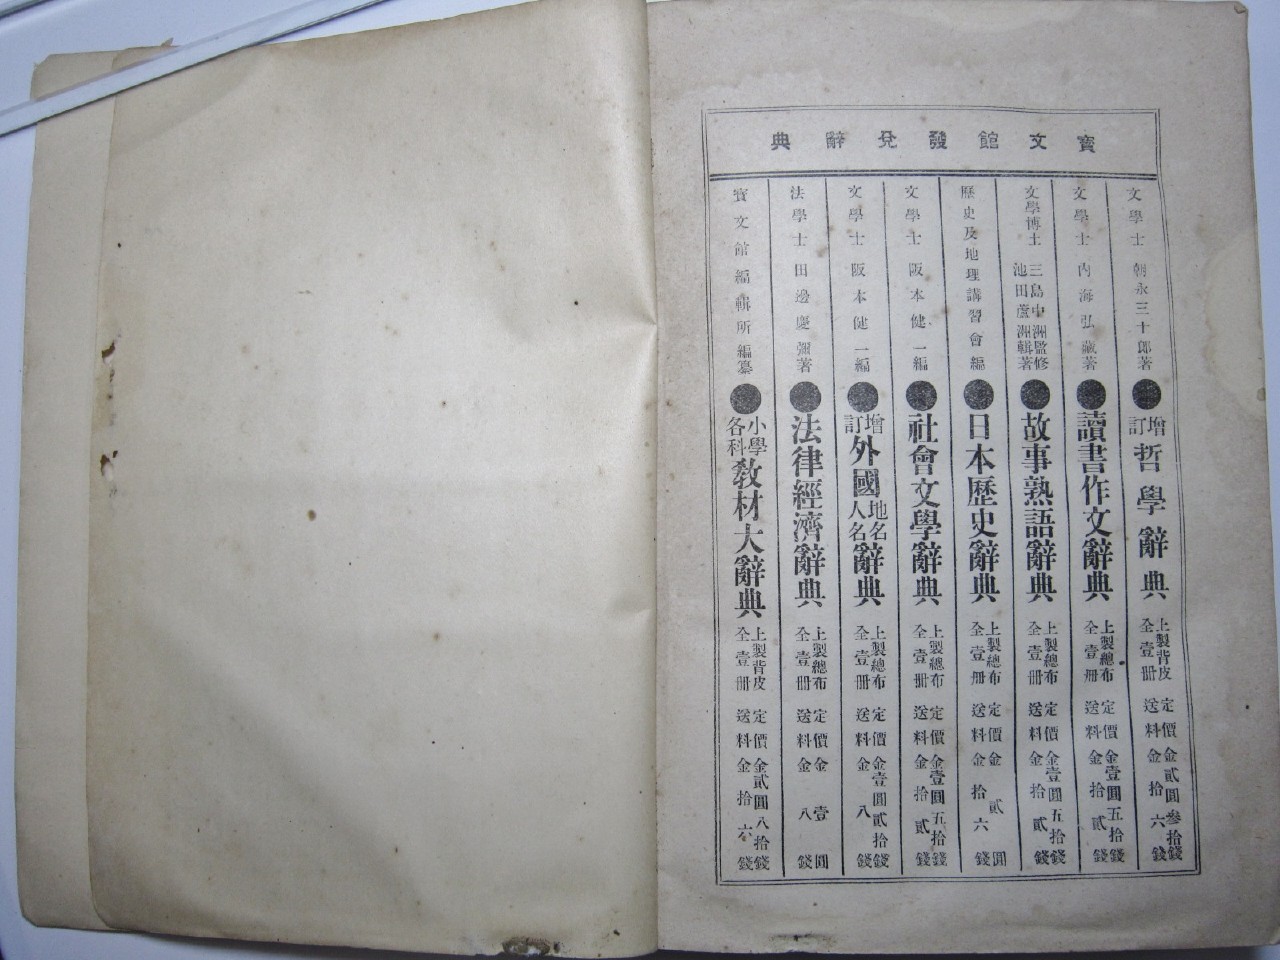 寶文館發兌辭典
文學士 朝永三十郎著 ●增訂哲學辭典 上製背皮全壹冊 定價金貳圓參拾錢 送料金拾六錢
文學士 內海弘藏著 ●讀書作文辭典 上製總布全壹冊 定價金壹圓五拾錢 送料金拾貳錢
文學博士 三島中洲監修 池田蘆洲輯著 ●故事熟語辭典 上製總布全壹冊 定價金壹圓五拾錢 送料金拾貳錢
歷史及地理講習會編 ●日本歷史辭典 上製總布全壹冊 定價金貳圓 送料金拾六錢
文學士 阪本健一編 ●社會文學辭典 上製總布全壹冊 定價金壹圓五拾錢 送料金拾貳錢
文學士 阪本健一編 ●增訂外國地名人名辭典 上製總布全壹冊 定價金壹圓貳拾錢 送料金八錢
法學士 田邊慶彌著 ●法律經濟辭典 上製總布全壹冊 定價金壹圓 送料金八錢
寶文館編輯所編纂 ●小學各科敎材大辭典 上製背皮全壹冊 定價金貳圓八拾錢 送料金拾六錢